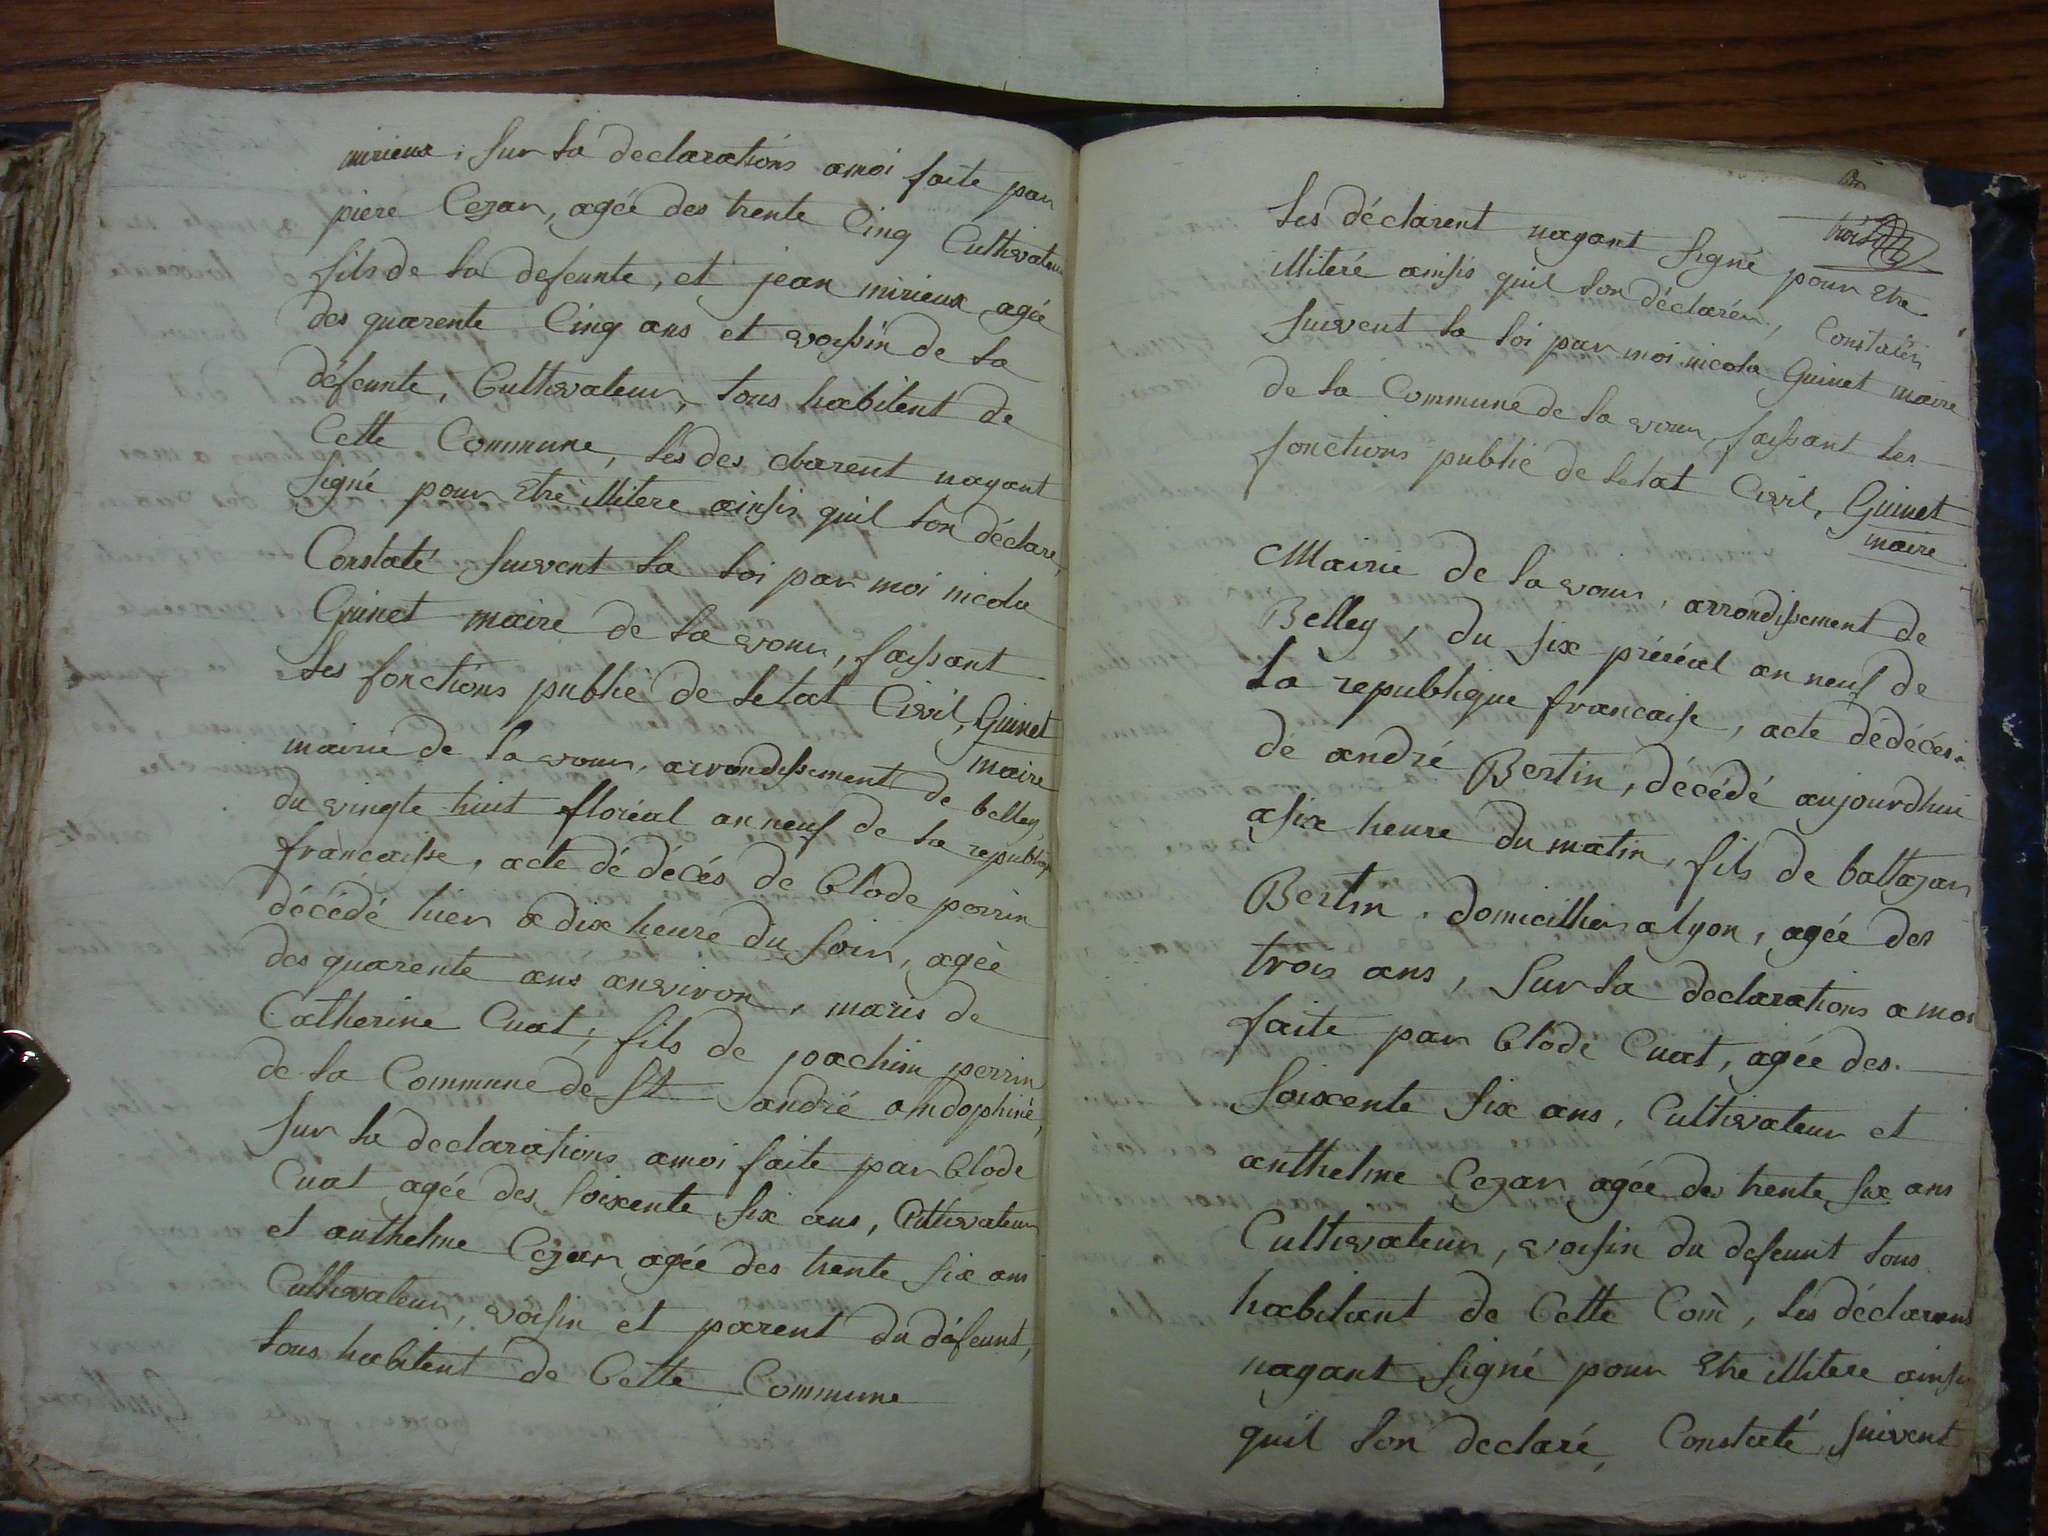 mirieux, sur la declarations amoi faite par
piere Cezar, agée des trente Cinq Cultivateur
fils de la defeunte, et jean mirieux agée
des quarente Cinq ans et voisin de la
défeunte, Cultivateur, tous habitent de
Cette Commune, les des clarent nayant
signé pour Etre illitere ainsis quil lon déclaré,
Constaté suivent la loi par moi nicola
Guinet maire de la vour, faissant
les fonctions publié de letat Civil, Guinet
maire
mairie de la vour, arrondissement de belley,
du vingte huit floréal an neuf de la republiq
francaisse, acte dé décés de Clode perrin
décédé hier a dix heure du soir, agée
des quarente ans anviron, maris de
Catherine Cuat, fils de joachim perrin
de la Commune de St andré andophiné,
sur la declarations amoi faite par Clode
Cuat agée des soixente six ans, Cultivateur
et anthelme Cezar agée des trente six ans
Cultivateur, voisin et parent du défeunt,
tous habitent de Cette Commune
trois
les déclarent nayant signé pour Etre
illiteré ainsis quil lon déclarér, Constatér
suivent la loi par moi nicola Guinet maire
de la Commune de la vour, faissant les
fonctions publié de letat Civil, Guinet
maire
Mairie de la vour, arrondissement de
Belley, du six préréal an neuf de
la republique francaise, acte dédécés
de andré Bertin, décédé aujourdhui
asix heure du matin, fils de baltazar
Bertin, domicillier alyon, agée des
trois ans, sur la declarations a moi
faite par Clode Cuat, agée des
soixente six ans, Cultivateur et
anthelme Cezar agée des trente six ans
Cultivateur, voisin du defeunt tous
habitant de Cette Com, les déclarent
nayant signé pour Etre illitere ainsis
quil lon declaré, Constaté suivent